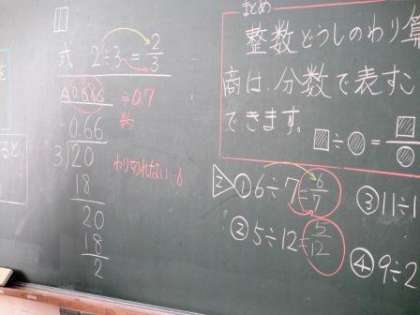 式 2÷3=2/3
0.666 ÷0.7
0.66
3)20
18
20
18
2
わり切れない
まとめ
整数どうしのわり算
商は、分数で表すこ
できます。
÷○=
① 6÷7=6/7
② 5÷12=5/12
③ 11÷1
④ 9÷2